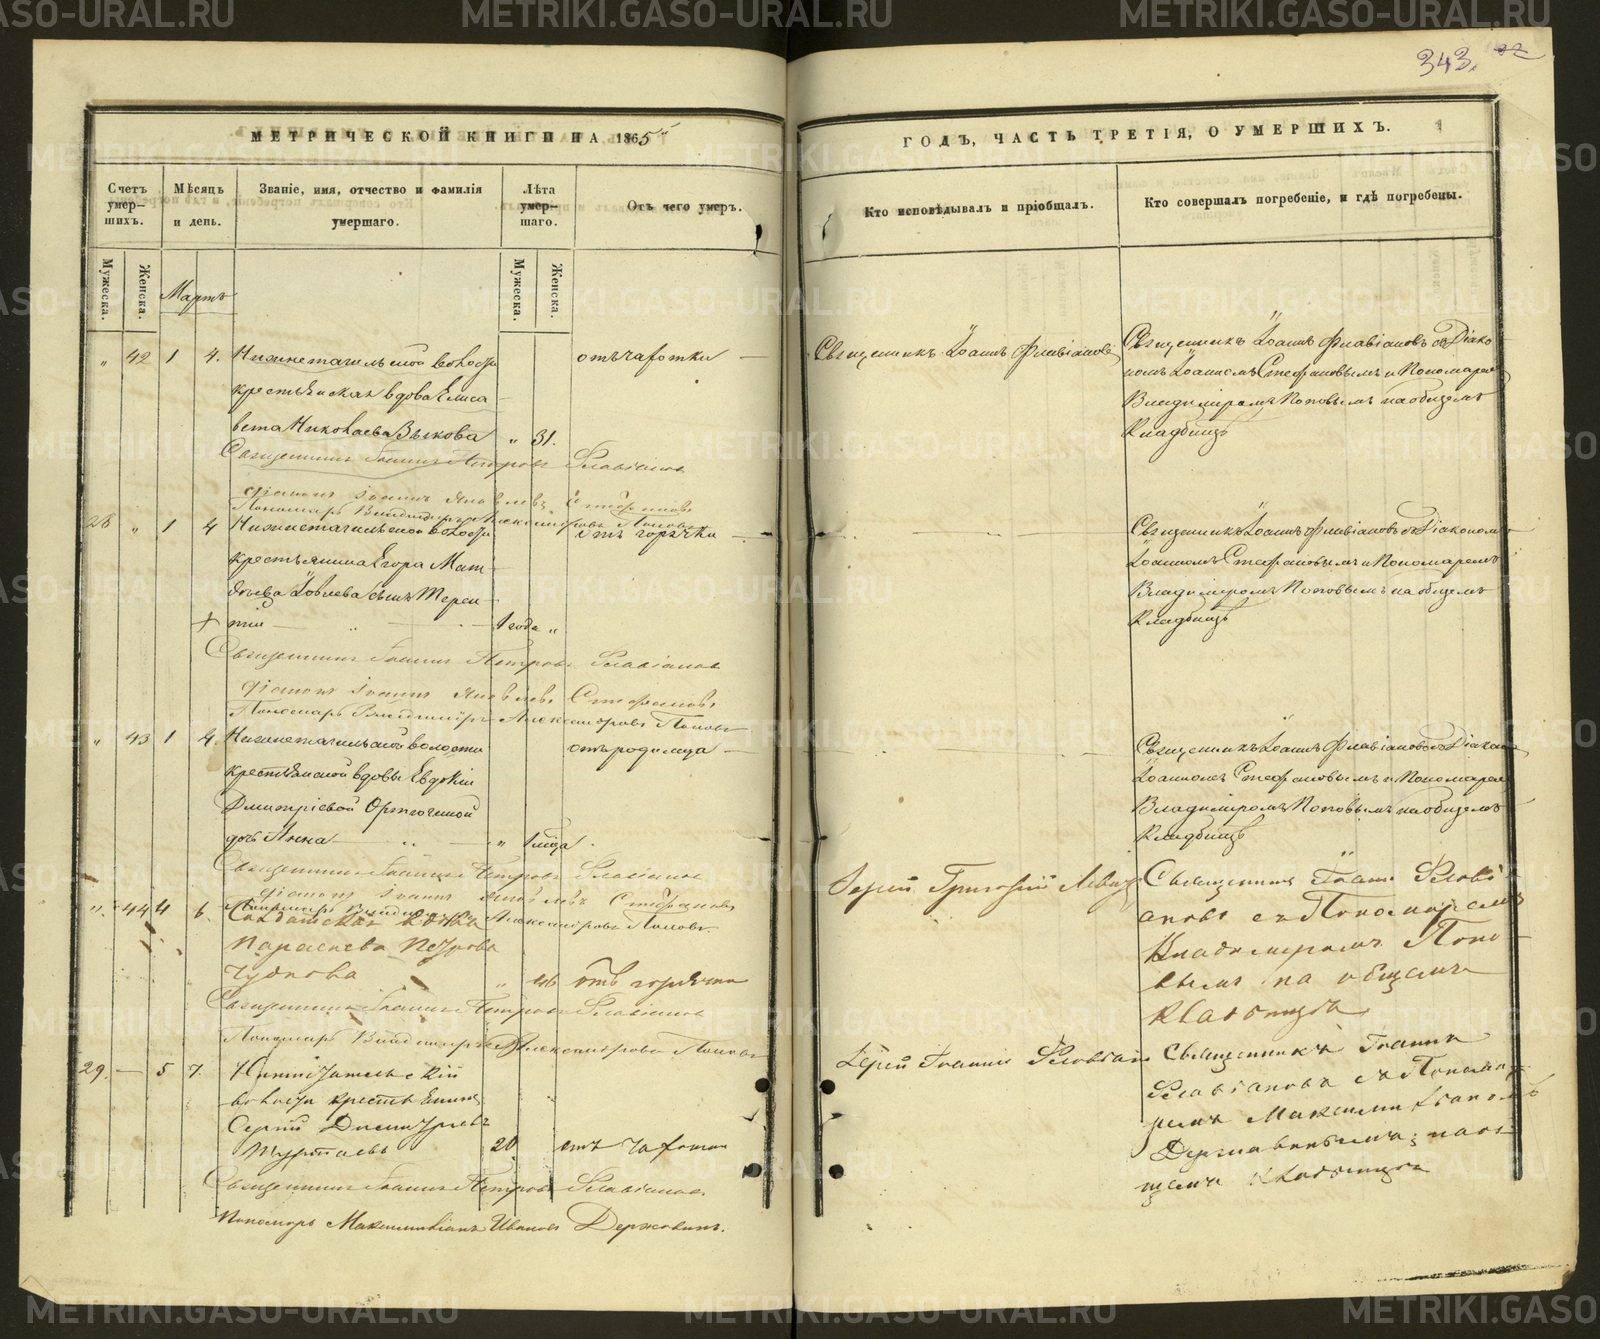 METRIKI.GASO-URAL.RU
343.
МЕТРИЧЕСКОЙ КНИГИ НА 1865й
ГОДЪ, ЧАСТЬ ТРЕТІЯ, О УМЕРШИХЪ.
Счетъ умер-шихъ.
Мѣсяцъ и день.
Званіе, имя, отчество и фамилія умершаго.
Лѣта умер-шаго.
Отъ чего умеръ.
Кто исповѣдывалъ и пріобщалъ.
Кто совершалъ погребеніе, и гдѣ погребены.
Мужеска.
Женска.
Мартъ
Мужеска.
Женска.
" 42 1 4. Нижнетагильской волости
отъ чахотки
Священникъ Іоаннъ Флавіановъ
Священникъ Іоаннъ Флавіановъ съ Діако
номъ Іоанномъ Стефановымъ и Пономаремъ
крестьянская вдова Елиса
Владиміромъ Поповымъ на общемъ
вета Николаева Зыкова " 31.
Кладбищѣ
Священникъ Іоаннъ Петровъ Флавіановъ
Діаконъ Іоаннъ Яковлевъ Стефановъ
Пономарь Владиміръ Александровъ Поповъ
28 " 1 4 Нижнетагильской волости
отъ горячки
Священникъ Іоаннъ Флавіановъ съ Діакономъ
крестьянина Егора Мат
Іоанномъ Стефановымъ и Пономаремъ
вѣева Іовлева сынъ Терен
Владиміромъ Поповымъ на общемъ
тій 1 года "
Кладбищѣ
Священникъ Іоаннъ Петровъ Флавіановъ
Діаконъ Іоаннъ Яковлевъ Стефановъ
Пономарь Владиміръ Александровъ Поповъ
" 43 1 4. Нижнетагильской волости
отъ родимца
Священникъ Іоаннъ Флавіановъ съ Діакон
крестьянской вдовы Евдокіи
Іоанномъ Стефановымъ и Пономарем
Дмитріевой
Владиміромъ Поповымъ на общемъ
дочь Анна "
Кладбищѣ
Священникъ Іоаннъ Петровъ Флавіановъ
Іерей Григорій
Священникъ Іоаннъ Флаві
Діаконъ Іоаннъ Яковлевъ Стефановъ
ановъ съ Пономаремъ
Пономарь Владиміръ Александровъ Поповъ
" 44 4 6. Солдатская вдова
Параскева Петрова
Владиміромъ Попо
вымъ на общемъ
Чудкова " 46 отъ горячки
Кладбищѣ
Священникъ Іоаннъ Петровъ Флавіановъ
Пономарь Владиміръ Александровъ Поповъ
29. — 5 7.
Іерей Іоаннъ Флавіан
Священникъ Іоаннъ
волости крестьянинъ
Флавіановъ съ Понома
Сергій Димитріевъ
ремъ Максимиліаномъ
20 отъ чахотки
Державинымъ на об
Священникъ Іоаннъ Петровъ Флавіановъ
щемъ кладбищѣ
Пономарь Максимиліанъ Ивановъ Державинъ.